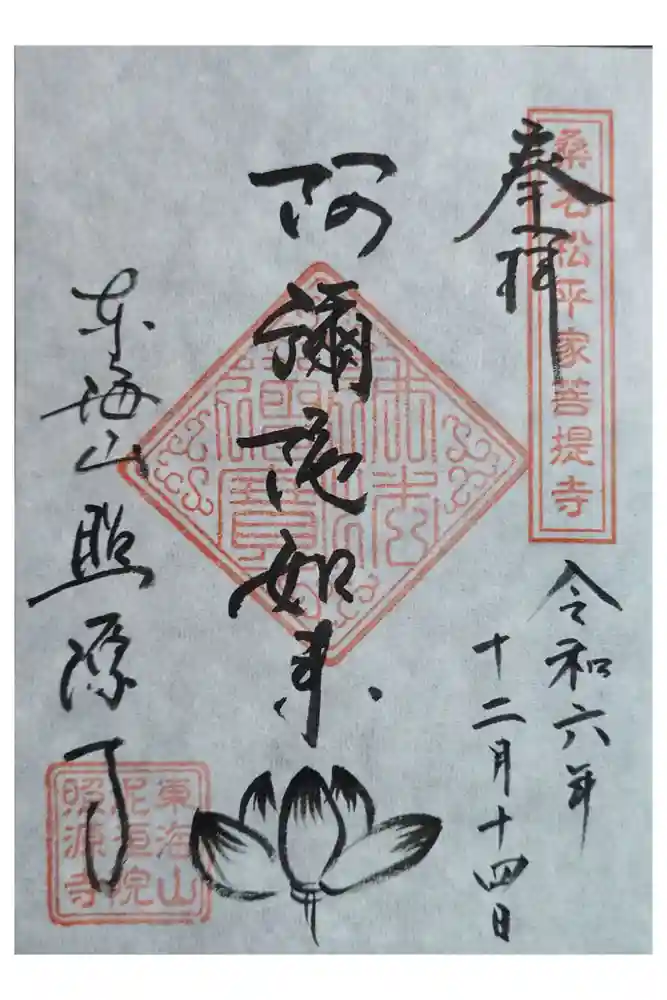 奉拝
桑名松平家菩提寺
令和六年
十二月十四日
阿彌陀如来
佛法僧寶
東海山 照源寺
東海山
泥洹院
照源寺